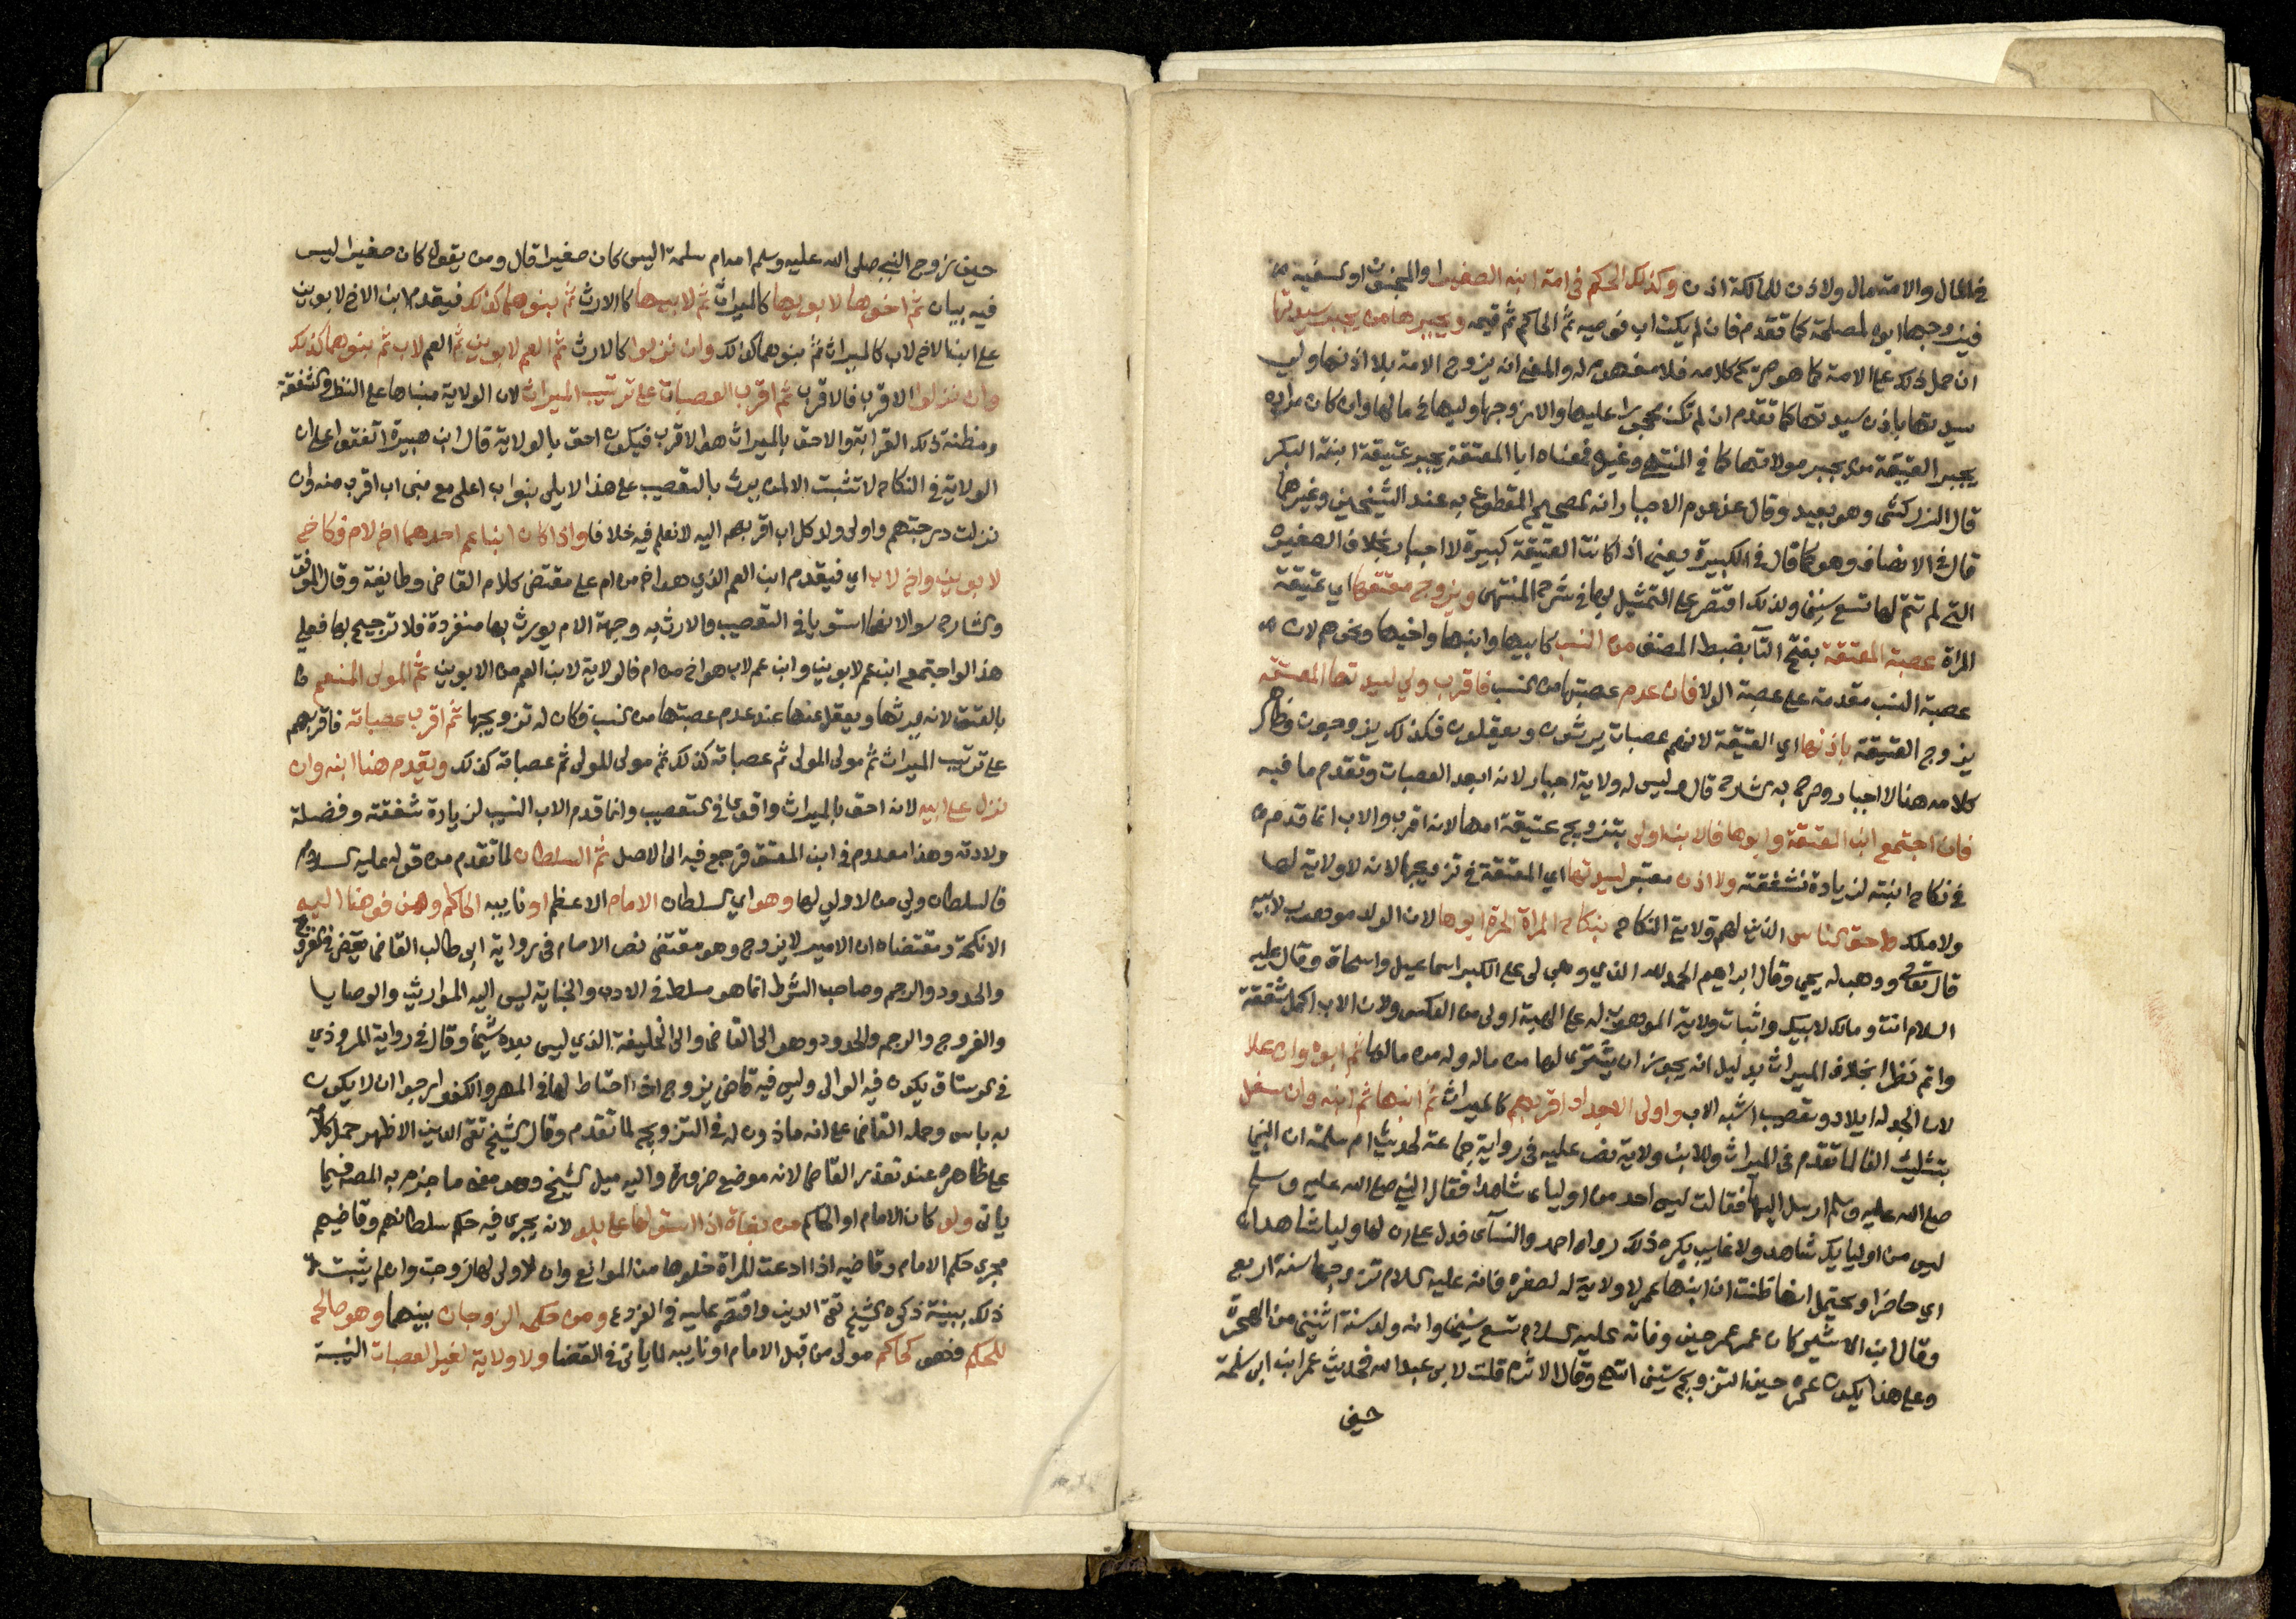 في المال والامة مال ولا اذن للمالكة اذن وكذلك الحكم في امة ابنه الصغير والمجنون او السفيه
فيزوجها ابوه لمصلحة كما تقدم فان لم يكن اب فوصيه ثم الحاكم ثم قيمه ويجبرها من يجبر سيدتها
ان حمل ذلك على الامة كما هو صريح كلامه فلا مفهوم له والمعنى انه يزوج الامة بلا اذنها ولي
سيدتها باذن سيدتها كما تقدم ان لم تكن محجورا عليها والا زوجها وليها في مالها وان كان مراده
يجبر العتيقة من يجبر مولاتها كما في المنتهى وغيره فمعناه ابا المعتقة يجبر عتيقة ابنته البكر
قال الزركشي وهو بعيد وقال عن عدم الاجبار انه الصحيح المقطوع به عند الشيخين وغيرهما
قال في الانصاف وهو كما قال في الكبيرة يعني اذا كانت العتيقة كبيرة لا اجبار بخلاف الصغيرة
التي لم تتم لها تسع سنين ولذلك اقتصر على التمثيل بها في شرح المنتهى ويزوج معتقتها اي عتيقة
المراة عصبة المعتقة بفتح التآ بضبط المصنف من النسب كابيها وابنها واخيها ونحوهم لان
عصبة النسب مقدمة على عصبة الولا فان عدم عصبتها من النسب فاقرب ولي لسيدتها المعتقة
يزوج العتيقة باذنها اي العتيقة لانهم عصبات يرثون ويعقلون فكذلك يزوجون وظاهر
كلامه هنا لا اجبار وصرح به الشارح قال وليس له ولاية اجبار لانه ابعد العصبات وتقدم ما فيه
فان اجتمع ابن المعتقة وابوها فالابن اولى بتزويج عتيقة امها لانه اقرب والاب انما قدم
في نكاح ابنته لزيادة شفقته ولا اذن معتبر لسيدتها اي المعتقة في تزويجها لانه لا ولاية لها
ولا ملك واحق الناس الذين لهم ولاية النكاح بنكاح المراة الحرة ابوها لان الولد موهوب لابيه
قال تعالى ووهبنا له يحيى وقال ابراهيم الحمد لله الذي وهب لي على الكبر اسماعيل واسحاق وقال عليه
السلام انت ومالك لابيك واثبات ولاية الموهوب له على الهبة اولى من العكس ولان الاب اكمل شفقة
واتم نظرا بخلاف الميراث بدليل انه يجوز ان يشتري لها من ماله وله من مالها ثم ابوه وان علا
لان الجد له ايلاد وتعصيب اشبه الاب واولى الاجداد اقربهم كالميراث ثم ابنها ثم ابنه وان سفل
بتثليث الفا لما تقدم في الميراث وللابن ولاية نص عليه في رواية جماعة لحديث ام سلمة ان النبي
صلى الله عليه وسلم ارسل اليها فقالت ليس احد من اولياى شاهدا فقال النبي صلى الله عليه وسلم
ليس من اوليايك شاهد ولا غايب يكره ذلك رواه احمد والنسآى فدل على ان لها وليا شاهدا
اي حاضرا ويحتمل انها ظنت ان ابنها عمر لا ولاية له لصغره فانه عليه السلام تزوجها سنة اربع
وقال ابن الاثير كان عمر عمر حين وفاته عليه السلام تسع سنين وانه ولد سنة اثنتين من الهجرة
وعلى هذا يكون عمره حين التزويج سنتين انتهى وقال الاثرم قلت لابي عبد الله فحديث عمر ابن ابي سلمة
حين
حين تزوج النبي صلى الله عليه وسلم امه ام سلمة اليس كان صغيرا قال ومن يقول كان صغيرا ليس
فيه بيان ثم اخوها لابويها كالميراث ثم لابيها كالارث ثم بنوهما كذلك فيقدم ابن الاخ لابوين
على ابن الاخ لاب كالميراث ثم بنوهما كذلك وان نزلوا كالارث ثم العم لابوين ثم العم لاب ثم بنوهما كذلك
وان نزلوا الاقرب فالاقرب ثم اقرب العصبات على ترتيب الميراث لان الولاية مبناها على النظر والشفقة
ومظنة ذلك القرابة والاحق بالميراث هو الاقرب فيكون احق بالولاية قال ابن هبيرة اتفقوا على ان
الولاية في النكاح لا تثبت الا لمن يرث بالتعصيب على هذا لا يلي بنو اب اعلى مع بني اب اقرب منه وان
نزلت درجتهم واولى ولد كل اب اقربهم اليه لا نعلم فيه خلافا واذا كان ابنا عم احدهما اخ لام فكاخ
لابوين واخ لاب اي فيقدم ابن العم الذي هو اخ من ام على مقتضى كلام القاضي وطايفة وقال الموفق
والشارح سوا لانهما استويا في التعصيب والارث به وجهة الام يورث بها منفردة فلا ترجيح بها فعلى
هذا لو اجتمع ابن عم لابوين وابن عم لاب هو اخ من ام فالولاية لابن العم من الابوين ثم المولى المنعم
بالعتق لانه يرثها ويعقل عنها عند عدم عصبتها من النسب فكان له تزويجها ثم اقرب عصباته فاقربهم
على ترتيب الميراث ثم مولى المولى ثم عصباته كذلك ثم مولى المولى ثم عصباته كذلك ويقدم هنا ابنه وان
نزل على ابيه لانه احق بالميراث واقوى في التعصيب وانما قدم الاب النسيب لزيادة شفقته وفضيلة
ولادته وهذا معدوم في ابن المعتق فرجع فيه الى الاصل ثم السلطان لما تقدم من قوله عليه السلام
فالسلطان ولي من لا ولي لها وهو اي السلطان الامام الاعظم او نايبه الحاكم ومن فوضا اليه
الانكحة ومقتضاه ان الامير لا يزوج وهو مقتضى نص الامام في رواية ابي طالب القاضي يقضي في الفروج
والحدود والرجم وصاحب الشرط انما هو مسلط في الادب والجناية ليس اليه المواريث والوصايا
والفروج والرجم والحدود وهو الى القاضي والى الخليفة الذي ليس بعده شيئ وقال في رواية المروذي
في الرستاق يكون فيه الوالي وليس فيه قاض يزوج اذا احتاط لها في المهر والكفو ارجوا ان لا يكون
به باس وحمله القاضي على انه ماذون له في التزويج لما تقدم وقال الشيخ تقي الدين الاظهر حمل كلامه
على ظاهره عند تعذر القاضي لانه موضع ضرورة واليه ميل الشيخ وهو معنى ما جزم به المصنف فيما
ياتي ولو كان الامام او الحاكم من بغاة اذا استولوا على بلد لانه يجري فيه حكم سلطانهم وقاضيهم
مجرى حكم الامام وقاضيه اذا ادعت المراة خلوها من الموانع وان لا ولي لها زوجت وان لم يثبت
ذلك ببينة ذكره الشيخ تقي الدين واقتصر عليه في الفروع ومن حكمه الزوجان بينهما وهو صالح
للحكم فهو كحاكم مولى من قبل الامام او نايبه لما ياتي في القضا ولا ولاية لغير العصبات النسبية